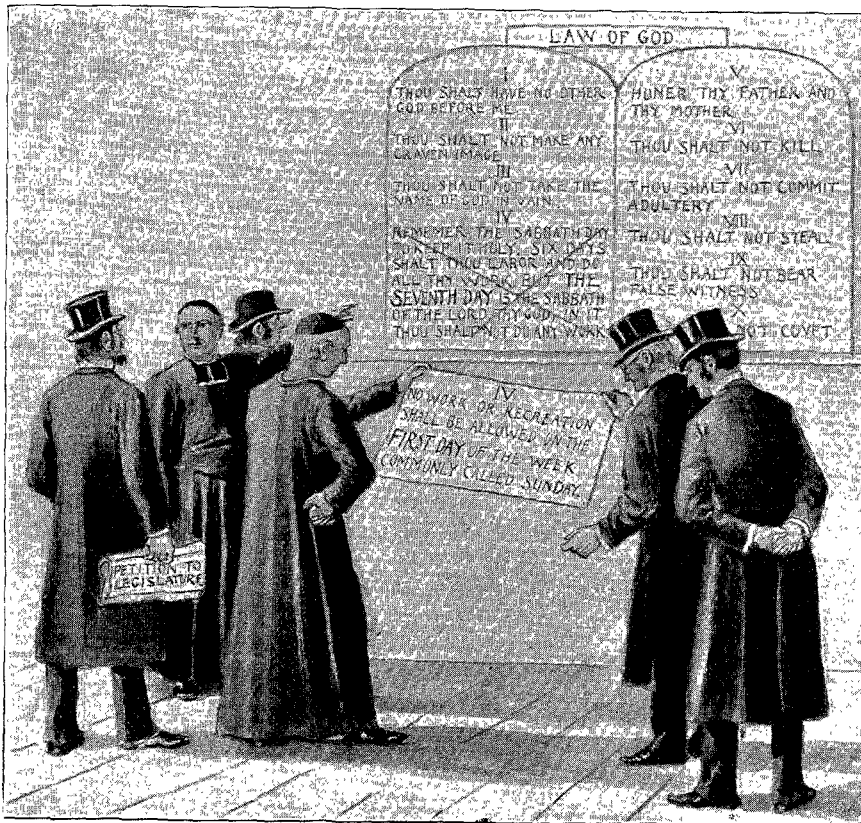 LAW OF GOD
I
THOU SHALT HAVE NO OTHER
GOD BEFORE ME
II
THOU SHALT NOT MAKE ANY
GRAVEN IMAGE
III
THOU SHALT NOT TAKE THE
NAME OF GOD IN VAIN
IV
REMEMER THE SABBATH DAY
TO KEEP IT HOLY. SIX DAYS
SHALT THOU LABOR AND DO
ALL THY WORK BUT THE
SEVENTH DAY IS THE SABBATH
OF THE LORD THY GOD. IN IT
THOU SHALT N'T DO ANY WORK
V
HUNER THY FATHER AND
THY MOTHER
VI
THOU SHALT NOT KILL
VII
THOU SHALT NOT COMMIT
ADULTERY
VIII
THOU SHALT NOT STEAL
IX
THOU SHALT NOT BEAR
FALSE WITNESS
X
NOT COVET
IV
NO WORK OR RECREATION
SHALL BE ALLOWED ON THE
FIRST DAY OF THE WEEK
COMMONLY CALLED SUNDAY.
PETITION TO
LEGISLATURE